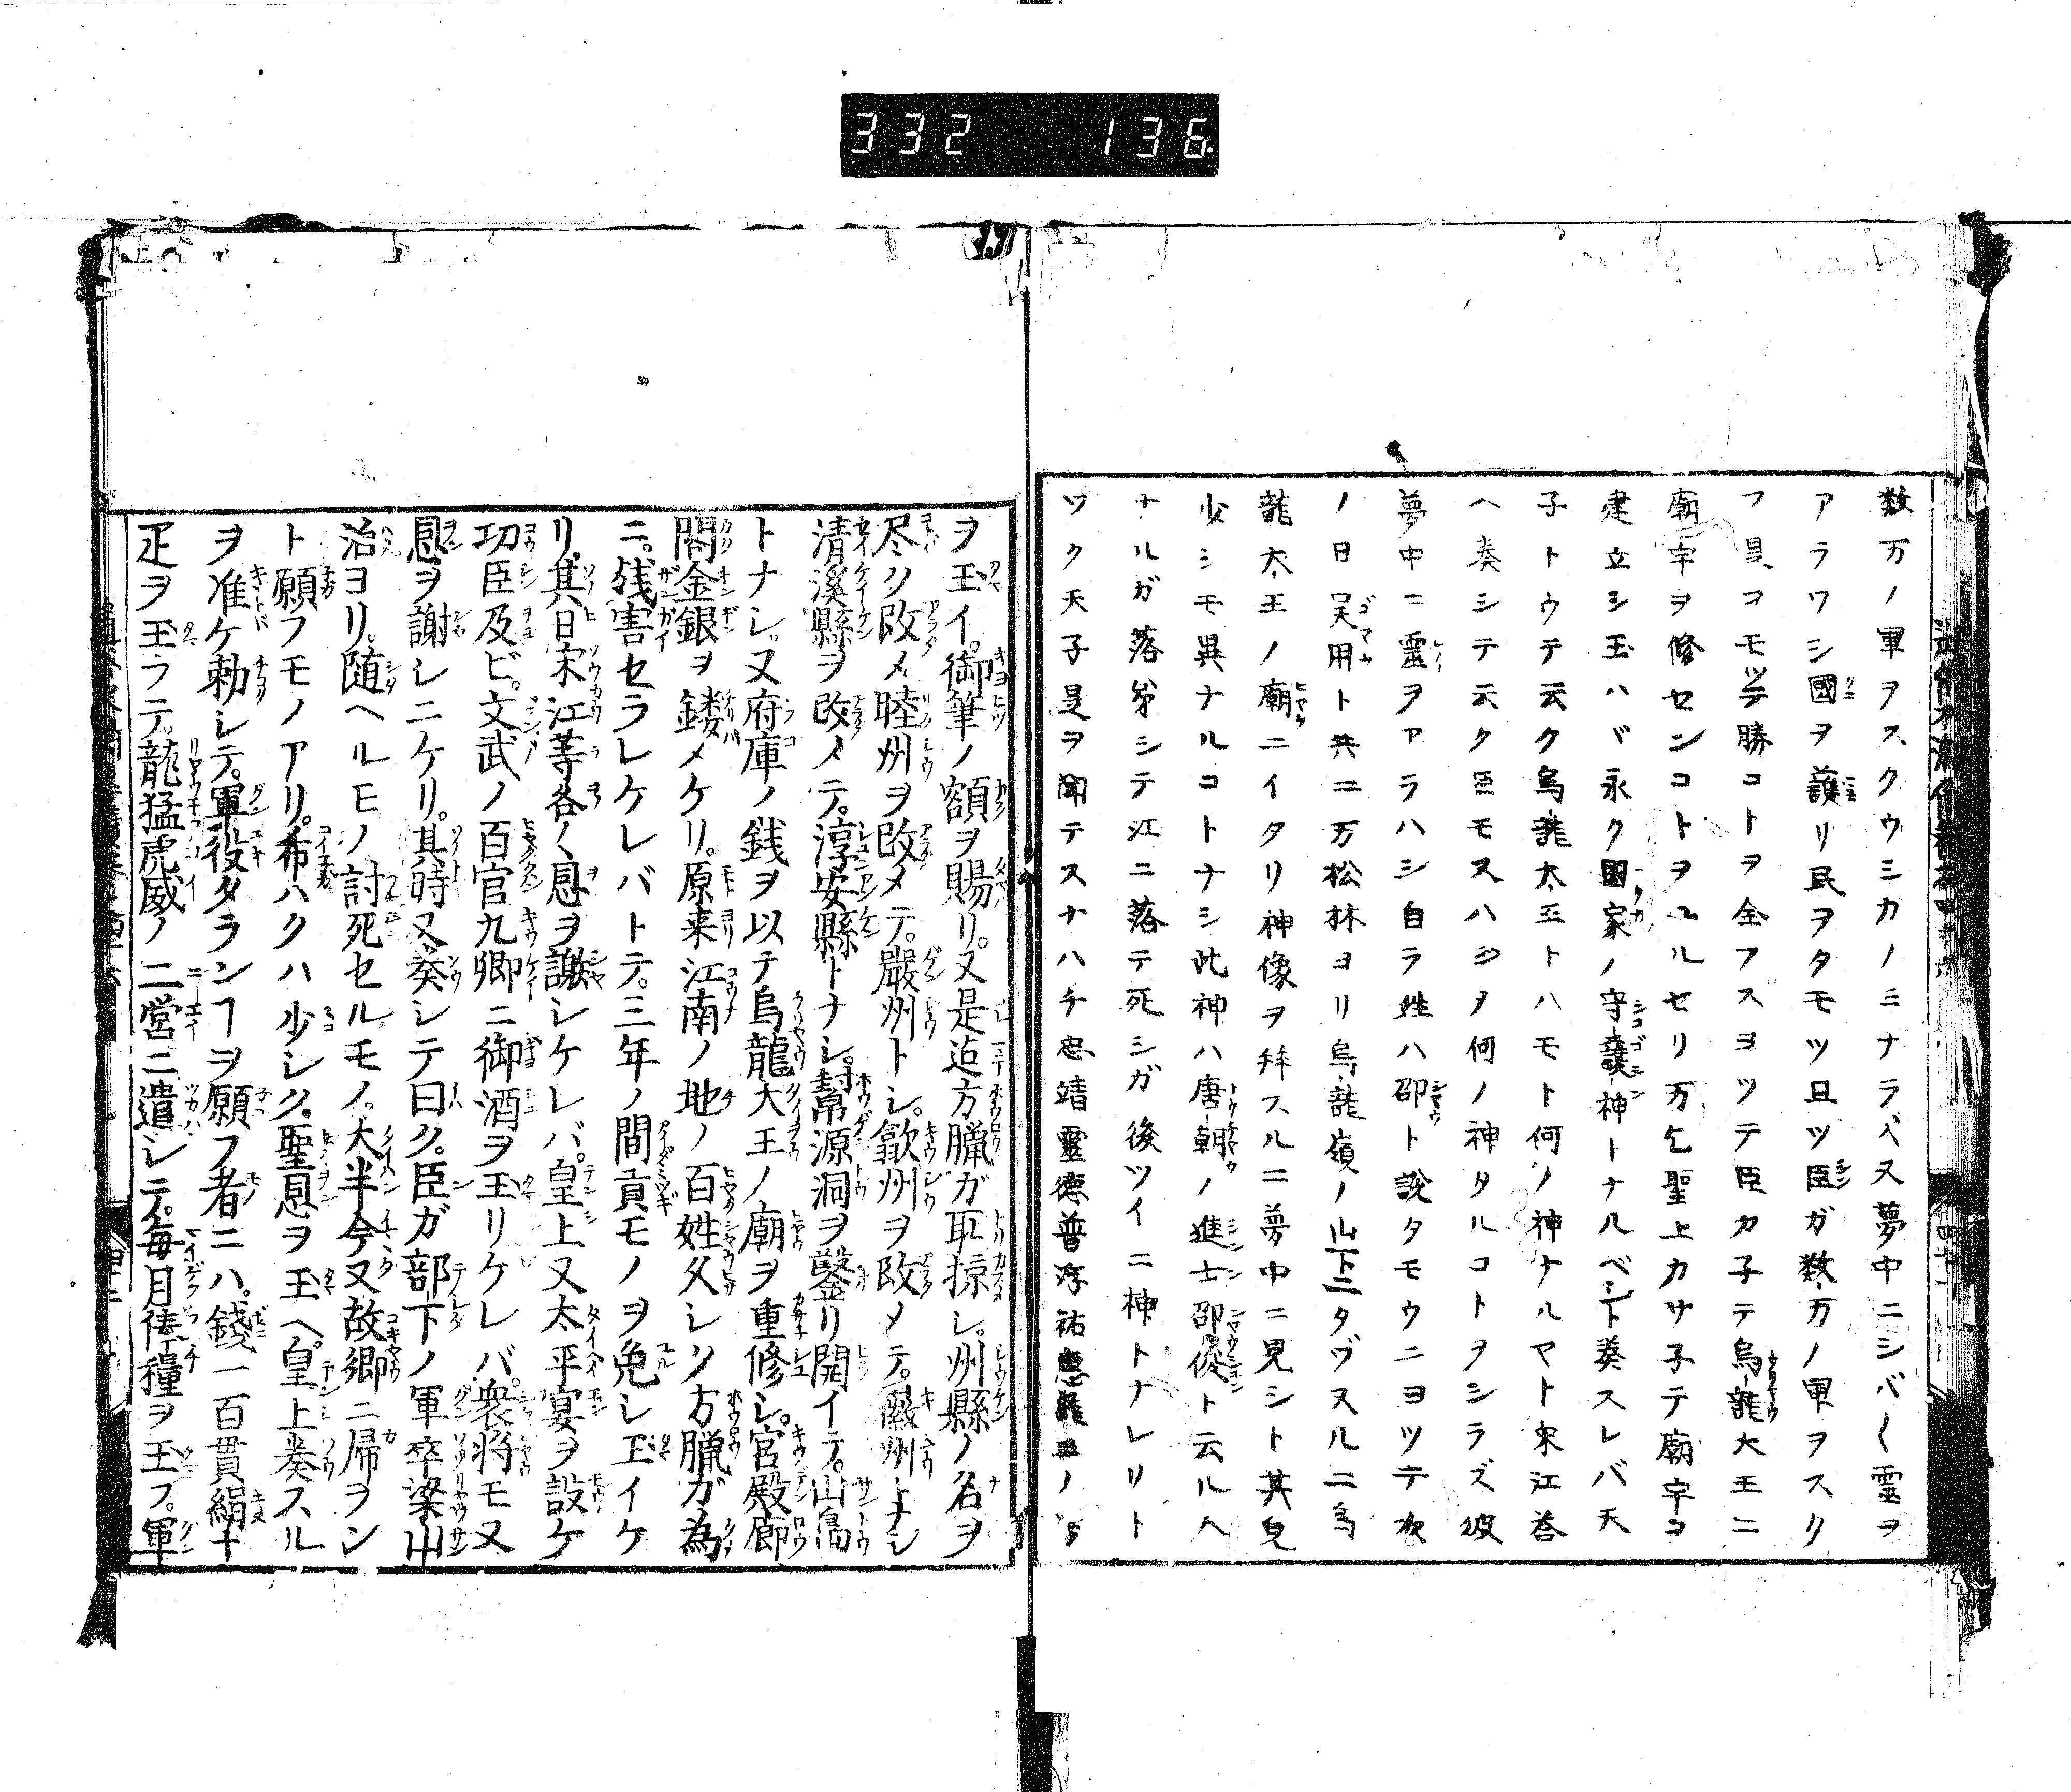 332 136
数万ノ軍ヲスクウミカノミナラズ又夢中ニシバ〱靈ヲ
アラワシ國ヲ護リ民ヲタモツ且ツ臣ガ数万ノ軍ヲスク
フ是コモッテ勝コトヲ全フスヨッテ臣カ子テ烏龍大王ニ
廟宇ヲ修センコトヲユルセリ万乞聖上カサ子テ廟宇ヲ
建立シ玉ハバ永ク國家ノ守護神トナルベシト奏スレバ天
子トウテ云ク烏龍大王トハモト何ノ神ナルヤト宋江答
ヘ奏シテ云ク臣モ又ハジヲ何ノ神タルコトヲシラズ彼
夢中ニ靈ヲアラハシ自ラ姓ハ邵ト説タモウニヨツテ次
ノ日呉用ト共ニ万松林ヨリ烏龍嶺ノ山下ニタヅヌルニ烏
龍大王ノ廟ニイタリ神像ヲ拜スルニ夢中ニ見シト其皃
少シモ異ナルコトナシ此神ハ唐朝ノ進士邵俊ト云ル人
ナルガ落第シテ江ニ落テ死シガ後ツイニ神トナレリト
ツク天子是ヲ聞テスナハチ忠靖靈德普祐惠龍王ノ
ヲ玉イ。御筆ノ額ヲ賜リ。又是迠方臘ガ耴掠シ。州縣ノ名ヲ
尽ク改メ睦州ヲ改メテ。嚴州トシ。歙州ヲ改メテ。徽州トナシ
清溪縣ヲ改メテ。淳安縣トナシ。幇源洞ヲ鑿リ開イテ。山島
トナシ。又府庫ノ銭ヲ以テ烏龍大王ノ廟ヲ重修シ。官殿廊
閣金銀ヲ鏤メケリ。原来江南ノ地ノ百姓久シク方臘ガ為
ニ。残害セラレケレバトテ。三年ノ間貢モノヲ免シ玉イケ
リ。其日宋江等各〻恩ヲ謝シケレバ。皇上又太平宴ヲ設ケ
功臣及ビ。文武ノ百官九卿ニ御酒ヲ玉リケレバ。衆将モ又
恩ヲ謝シニケリ。其時又奏シテ曰ク。臣ガ部下ノ軍卒梁山
治ヨリ。随ヘルモノ討死セルモノ。大半今又故郷ニ帰ヲン
ト願フモノアリ。希ハクハ少シク。聖恩ヲ玉ヘ。皇上奏スル
ヲ准ケ勅シテ。軍役タランヿヲ願フ者ニハ。錢一百貫絹十
疋ヲ玉ラテ。龍猛虎威ノ二営ニ遣シテ。毎月俸糧ヲ玉フ。軍